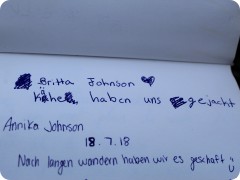 Britta Johnson ♥
Kühe haben uns gejacht
Annika Johnson
18.7.18
Nach langen wandern haben wir es geschaft :)